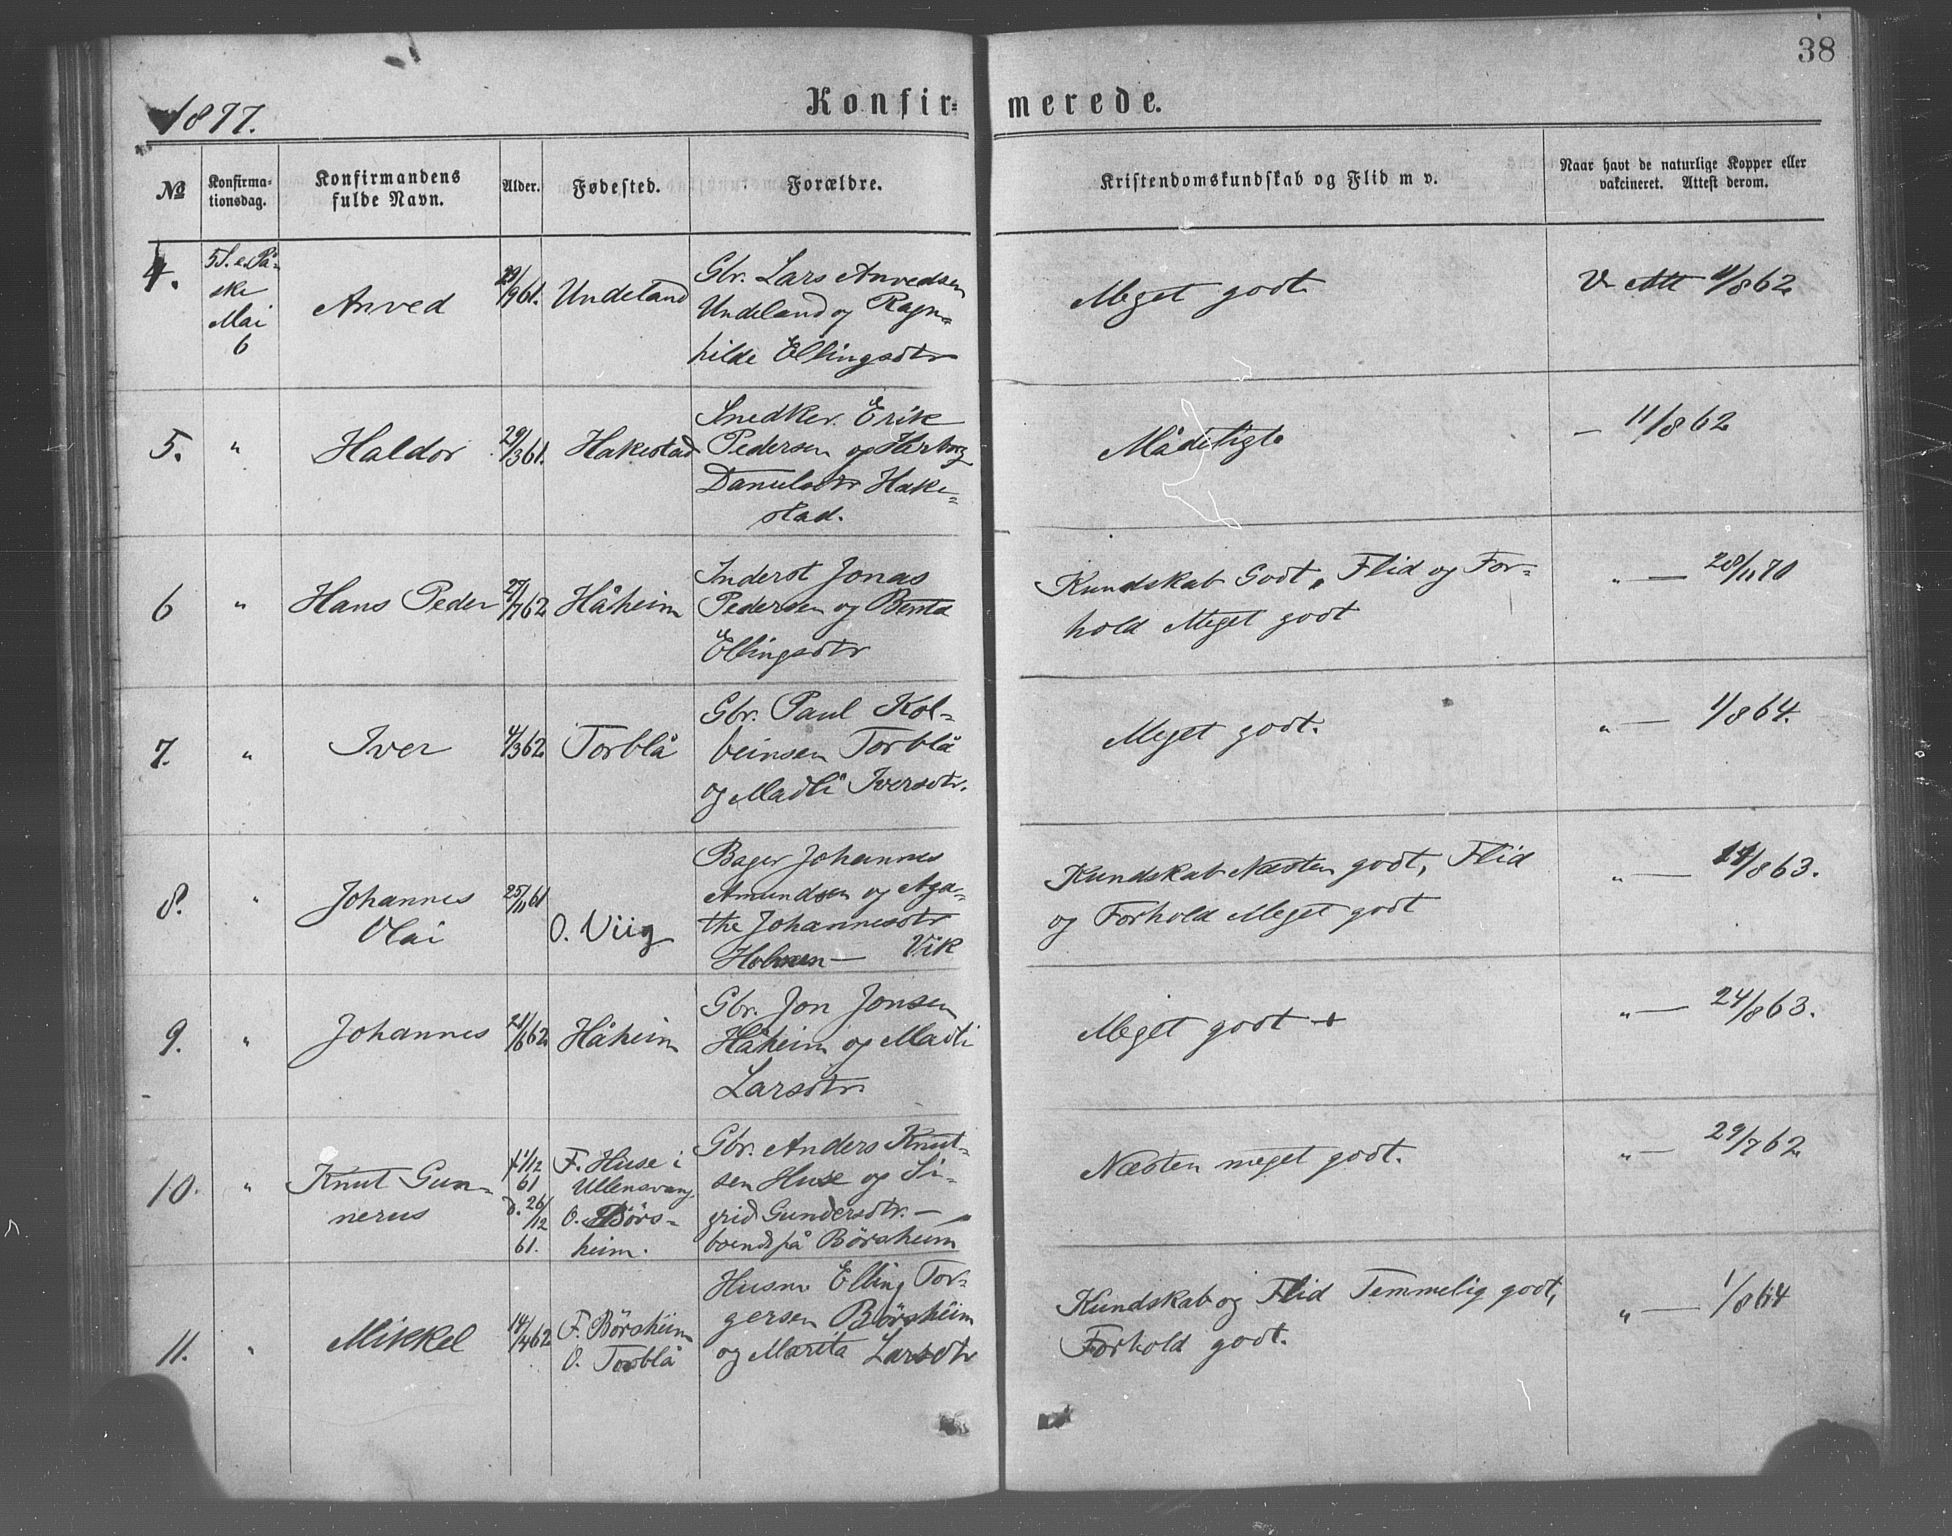 38
1877.
Konfir-
merede.
№
Konfirma-
tionsdag.
Konfirmandens
fulde Navn.
Alder.
Fødested.
Forældre.
Kristendomskundskab og Flid m v.
Naar havt de naturlige Kopper eller
vakcineret. Attest derom.
4.
5 S. e. På-
ske
Mai
6
Anved
/9 61.
Undeland
Gbr. Lars Anvedsen
Undeland og Ragn-
hilde Ellingsdtr
Meget godt
V. Att /8 62
5.
"
Haldor
29/3 61.
Hakestad
Snedker Erik
Pedersen og Herborg
Danielsdtr Hake-
stad.
Mådeligt
— 11/8 62
6
"
Hans Peder
27/7 62
Håheim
Inderst Jonas
Pedersen og Bertha
Ellingsdtr
Kundskab Godt, Flid og For-
hold Meget godt
" — 28/11 70
7.
"
Iver
4/3 62
Torblå
Gbr. Paul Kol-
beinsen Torblå
og Madli Iversdtr.
Meget godt.
" — 1/8 64.
8.
"
Johannes
Olai
25/11 61
O. Viig
Bager Johannes
Amundsen og Aga-
the Johannesdtr
Holmen — Vik
Kundskab Næsten godt, Flid
og Forhold Meget godt
" — /8 63.
9.
"
Johannes
21/6 62
Håheim
Gbr. Jon Jonsen
Håheim og Madli
Larsdtr.
Meget godt +
" — 24/8 63.
10.
"
Knut Gun-
nerus
f. 1/12
61
d. 26/12
61.
F. Huse i
Ullensvang
O. Børs-
heim.
Gbr. Anders Knut-
sen Huse og Si-
grid Gundersdtr. —
boende på Børsheim
Næsten meget godt.
" — 29/7 62
11.
"
Mikkel
14/4 62
F. Børsheim
O. Torblå
Husm. Elling Tor-
gersen Børsheim
og Marita Larsdtr
Kundskab og Flid Temmelig godt,
Forhold godt.
" — 1/8 64